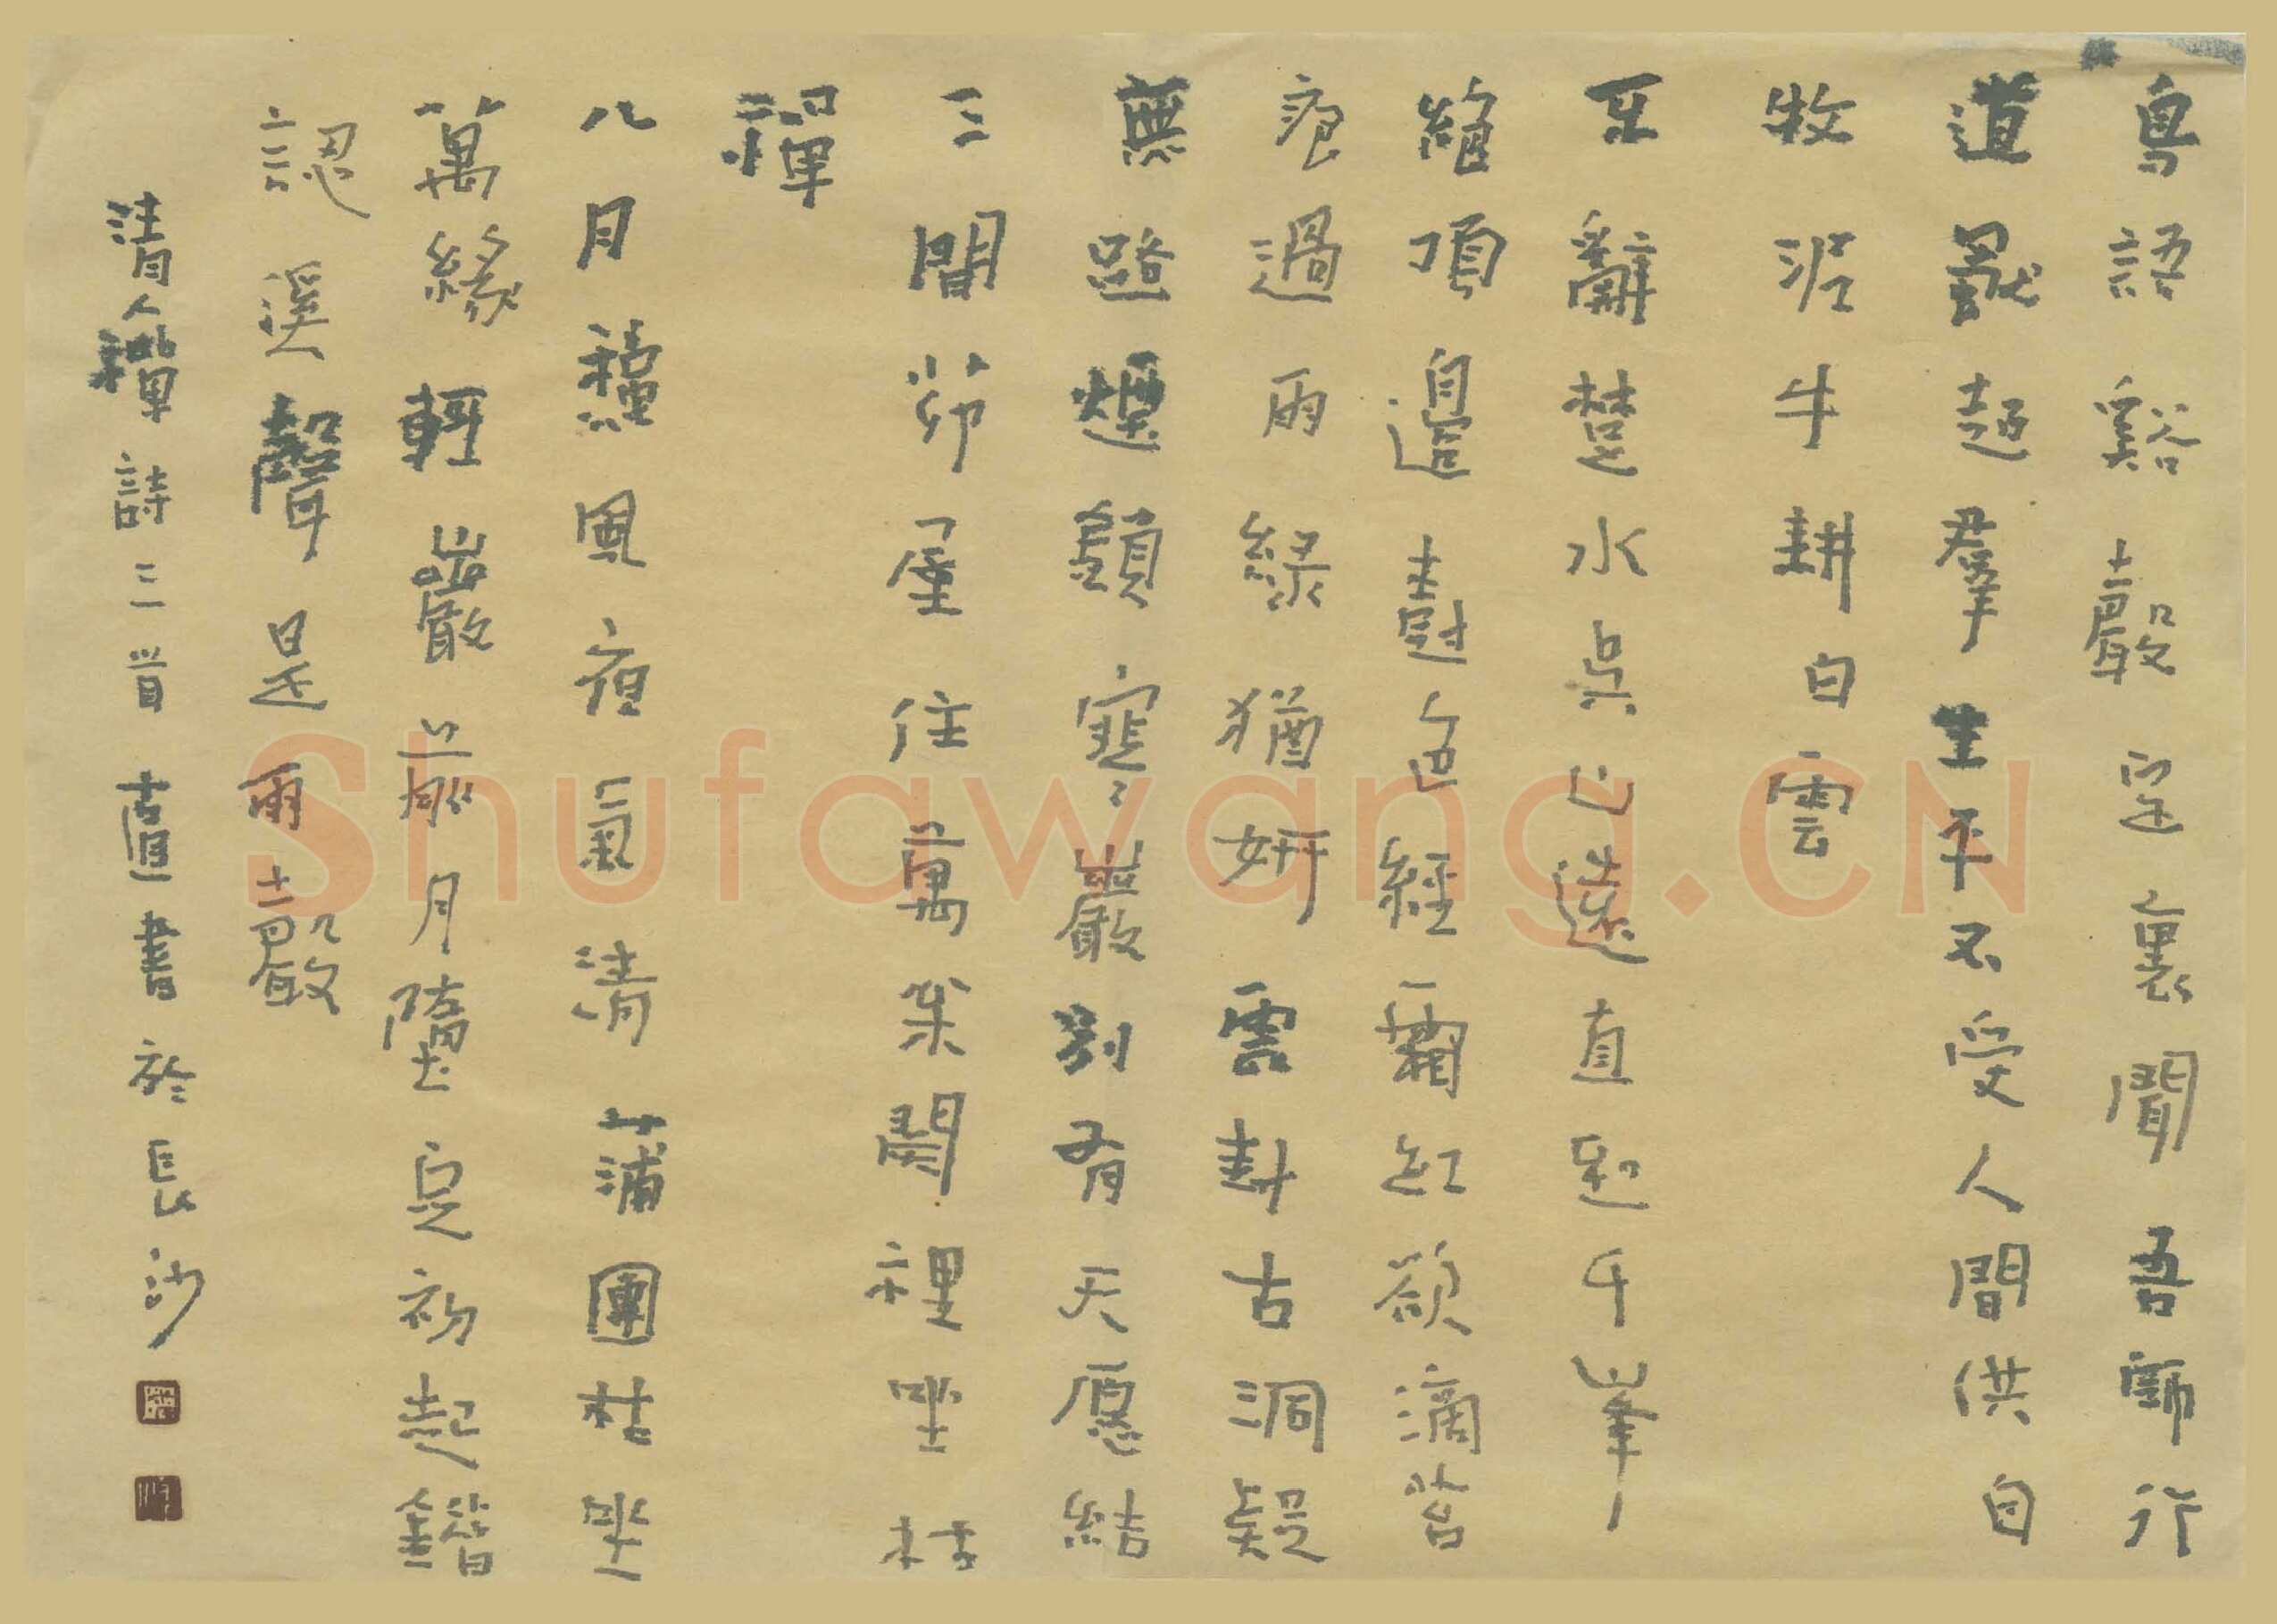 鳥語谿聲定裏聞吾師行
道最超羣生平不受人間供自
牧泥牛耕白雲
不辭楚水吳山遠直到千峯
絕頂邊樹色經霜紅欲滴苔
痕過雨綠猶妍雲封古洞疑
無路煙鎖寒巖別有天愿結
三間茆屋住萬枀關裡坐枯
禪
八月龝風夜氣清蒲團枯坐
萬緣輕巖前月墮定初起錯
認溪聲是雨聲
清人禪詩三首書於長沙
Shufawang.CN